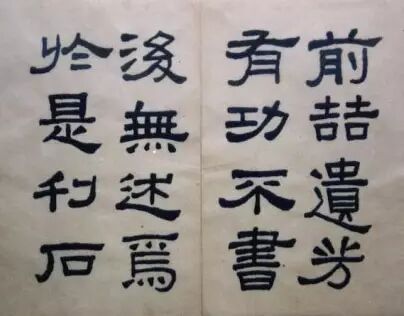 前喆遺芳
有功不書
後無述焉
於是刊石